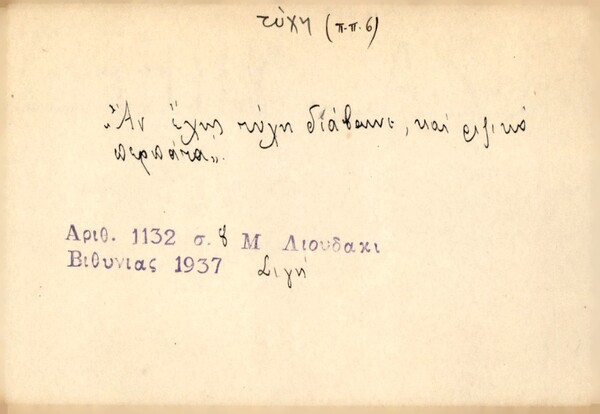 τύχη (π-π. 6)
"Ἄν ἔχῃς τύχη διάβαινε, καί ριζικό
περπάτα".
Αριθ. 1132 σ. 8 Μ Λιουδακι
Βιθυνιας 1937 Σιγή